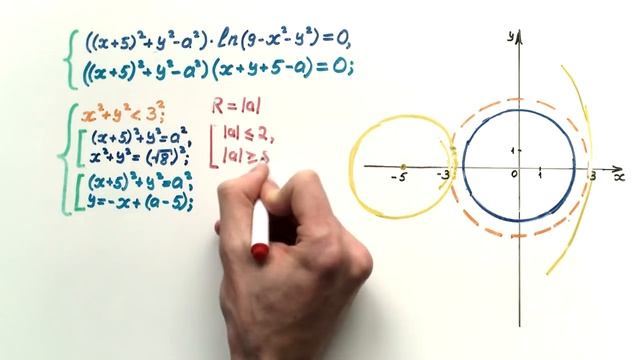 ((x+5)²+y²-a²)·ln(9-x²-y²)=0,
((x+5)²+y²-a²)(x+y+5-a)=0;
x²+y²<3²;
(x+5)²+y²=a²,
x²+y²=(√8)²;
(x+5)²+y²=a²,
y=-x+(a-5);
R=|a|
|a|≤2,
|a|≥
y
1
-5
-3
0
1
3
x